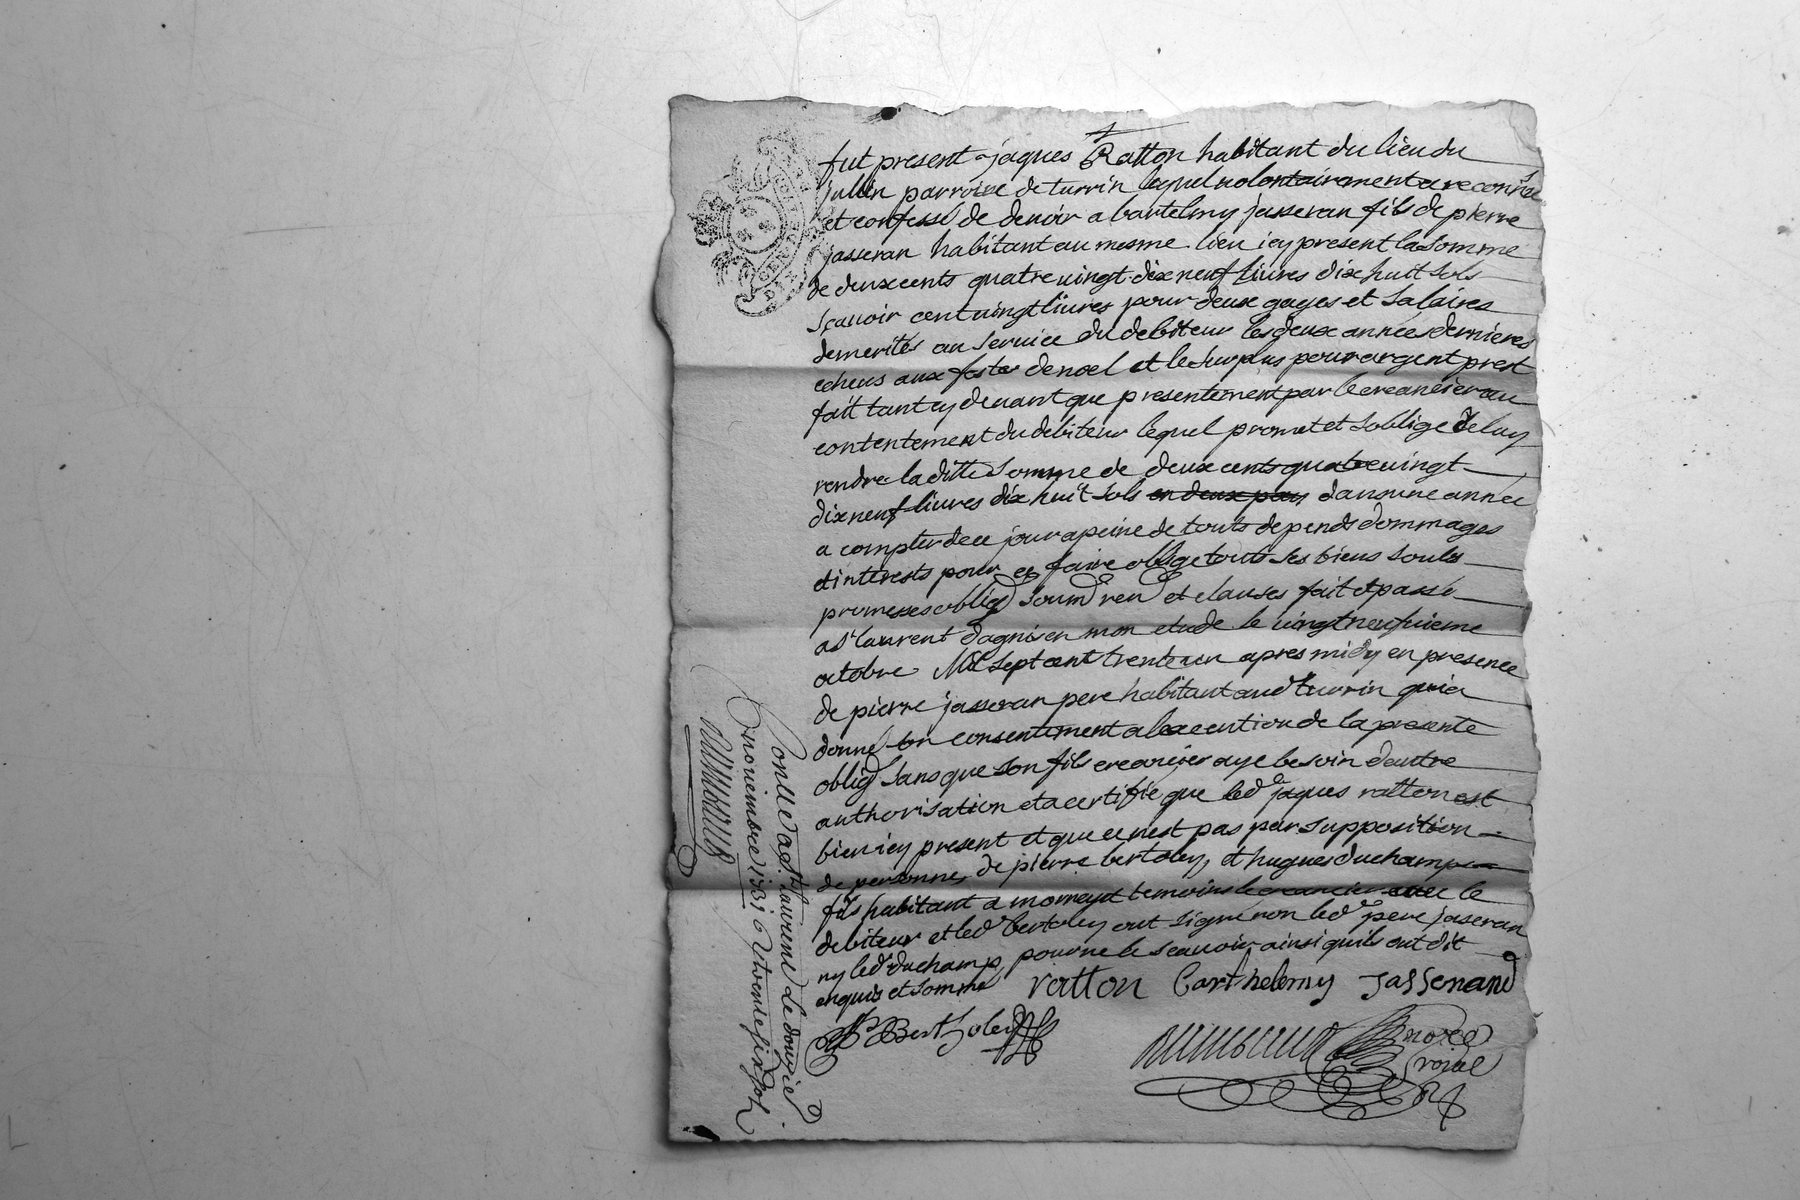 fut present jaques Ratton habitant du lieu du
jullin parroise de turrin lequel volontairement a reconnu
et confessé de devoir a bartelmy jasseran fils de pierre
jasseran habitant au mesme lieu icy present la somme
de deux cents quatre vingt dix neuf livres dix huit sols
sçavoir cent vingt livres pour deux gages et salaires
demerités au service du debiteur les deux années dernieres
echeus aux festes de noel et le surplus pour argent prest
fait tant cy devant que presentement par le creancier au
contentement du debiteur lequel promet et soblige de luy
rendre la ditte somme de deux cents quatre vingt
dix neuf livres dix huit sols en deux pay dans une année
a compter de ce jour a peine de touts depends dommages
et interests pour ce faire oblige touts ses biens soubs
promesses oblig soum ren et clauses fait et passé
a st laurent dagni en mon etude le vingt neufvieme
octobre Mil sept cent trente un apres midy en presence
de pierre jasseran pere habitant aud turrin qui a
donné son consentement a lexecution de la presente
oblig sans que son fils creancier aye besoin dautre
authorisation et a certifié que led jaques ratton est
bien icy present et que ce nest pas par supposition
de personne, de pierre bertoley, et hugues duchamp
fils habitant a mornant temoins le creancier avec le
debiteur et led bertoley ont signé non led pere jaseran
ny led duchamp pour ne le scavoir ainsi quils ont dit
enquis et sommé ratton barthelemy jasserand
Bertholey
nore
royal
Conllé a st laurent le douzie
novembre 1731